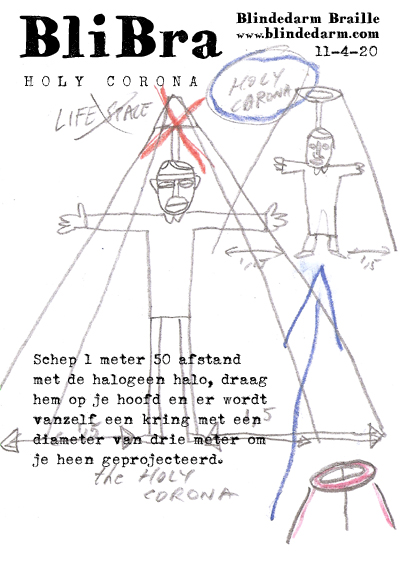 BliBra
Blindedarm Braille
www.blindedarm.com
11-4-20
HOLY CORONA
LIFE SPACE
HOLY
CORONA
1,5
Schep 1 meter 50 afstand
met de halogeen halo, draag
hem op je hoofd en er wordt
vanzelf een kring met een
diameter van drie meter om
je heen geprojecteerd.
the HOLY
CORONA